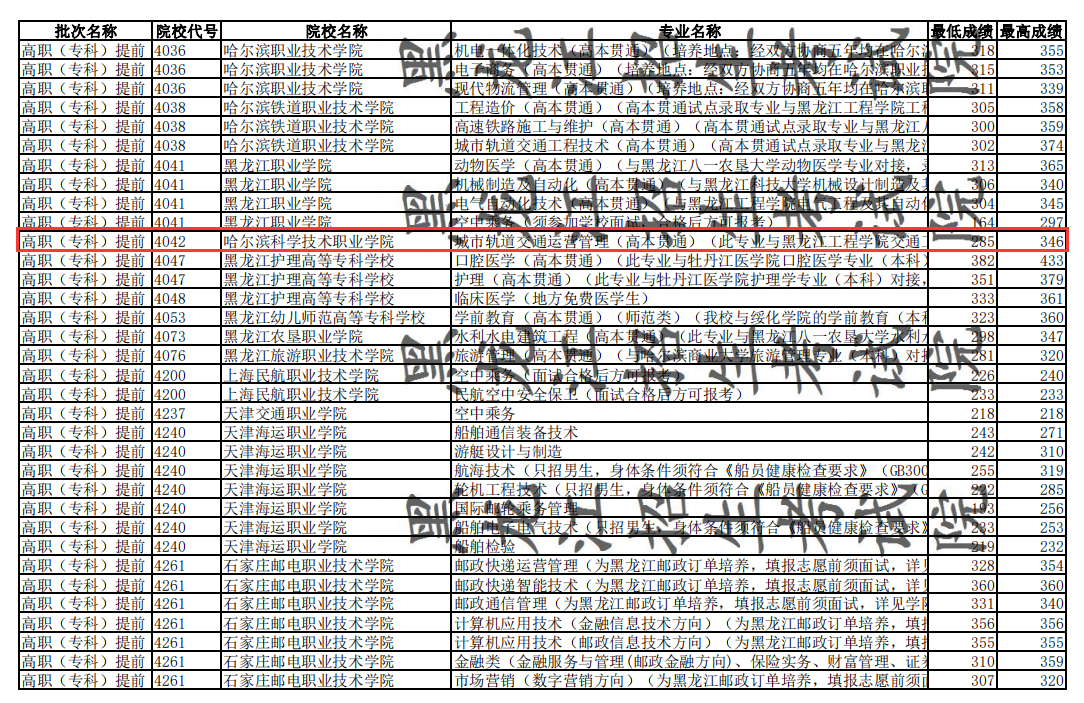 批次名称 院校代号 院校名称 专业名称 最低成绩 最高成绩
高职（专科）提前 4036 哈尔滨职业技术学院 机电一体化技术（高本贯通）（培养地点：经双方协商五年均在哈尔滨 318 355
高职（专科）提前 4036 哈尔滨职业技术学院 电子商务（高本贯通）（培养地点：经双方协商五年均在哈尔滨职业技 315 353
高职（专科）提前 4036 哈尔滨职业技术学院 现代物流管理（高本贯通）（培养地点：经双方协商五年均在哈尔滨职 311 339
高职（专科）提前 4038 哈尔滨铁道职业技术学院 工程造价（高本贯通）（高本贯通试点录取专业与黑龙江工程学院工程 305 358
高职（专科）提前 4038 哈尔滨铁道职业技术学院 高速铁路施工与维护（高本贯通）（高本贯通试点录取专业与黑龙江 300 359
高职（专科）提前 4038 哈尔滨铁道职业技术学院 城市轨道交通工程技术（高本贯通）（高本贯通试点录取专业与黑龙江 302 374
高职（专科）提前 4041 黑龙江职业学院 动物医学（高本贯通）（与黑龙江八一农垦大学动物医学专业对接， 313 365
高职（专科）提前 4041 黑龙江职业学院 机械制造及自动化（高本贯通）（与黑龙江科技大学机械设计制造及其 306 340
高职（专科）提前 4041 黑龙江职业学院 电气自动化技术（高本贯通）（与黑龙江工程学院电气工程及其自动化 304 345
高职（专科）提前 4041 黑龙江职业学院 空中乘务（须参加学校面试，合格后方可报考） 164 297
高职（专科）提前 4042 哈尔滨科学技术职业学院 城市轨道交通运营管理（高本贯通）（此专业与黑龙江工程学院交通工 285 346
高职（专科）提前 4047 黑龙江护理高等专科学校 口腔医学（高本贯通）（此专业与牡丹江医学院口腔医学专业（本科） 382 433
高职（专科）提前 4047 黑龙江护理高等专科学校 护理（高本贯通）（此专业与牡丹江医学院护理学专业（本科）对接， 351 379
高职（专科）提前 4048 黑龙江护理高等专科学校 临床医学（地方免费医学生） 333 361
高职（专科）提前 4053 黑龙江幼儿师范高等专科学校 学前教育（高本贯通）（师范类）（我校与绥化学院的学前教育（本科 323 360
高职（专科）提前 4073 黑龙江农垦职业学院 水利水电建筑工程（高本贯通）（此专业与黑龙江八一农垦大学水利水 298 347
高职（专科）提前 4076 黑龙江旅游职业技术学院 旅游管理（高本贯通）（与哈尔滨商业大学旅游管理专业（本科）对接 281 320
高职（专科）提前 4200 上海民航职业技术学院 空中乘务（面试合格后方可报考） 226 240
高职（专科）提前 4200 上海民航职业技术学院 民航空中安全保卫（面试合格后方可报考） 233 233
高职（专科）提前 4237 天津交通职业学院 空中乘务 218 218
高职（专科）提前 4240 天津海运职业学院 船舶通信装备技术 243 271
高职（专科）提前 4240 天津海运职业学院 游艇设计与制造 242 310
高职（专科）提前 4240 天津海运职业学院 航海技术（只招男生，身体条件须符合《船员健康检查要求》（GB300 255 319
高职（专科）提前 4240 天津海运职业学院 轮机工程技术（只招男生，身体条件须符合《船员健康检查要求》（G 222 285
高职（专科）提前 4240 天津海运职业学院 国际邮轮乘务管理 193 256
高职（专科）提前 4240 天津海运职业学院 船舶电子电气技术（只招男生，身体条件须符合《船员健康检查要求》 233 253
高职（专科）提前 4240 天津海运职业学院 船舶检验 219 232
高职（专科）提前 4261 石家庄邮电职业技术学院 邮政快递运营管理（为黑龙江邮政订单培养，填报志愿前须面试，详见 328 354
高职（专科）提前 4261 石家庄邮电职业技术学院 邮政快递智能技术（为黑龙江邮政订单培养，填报志愿前须面试，详见 360 360
高职（专科）提前 4261 石家庄邮电职业技术学院 邮政通信管理（为黑龙江邮政订单培养，填报志愿前须面试，详见学院 331 340
高职（专科）提前 4261 石家庄邮电职业技术学院 计算机应用技术（金融信息技术方向）（为黑龙江邮政订单培养，填报 356 356
高职（专科）提前 4261 石家庄邮电职业技术学院 计算机应用技术（邮政信息技术方向）（为黑龙江邮政订单培养，填报 355 355
高职（专科）提前 4261 石家庄邮电职业技术学院 金融类（金融服务与管理(邮政金融方向)、保险实务、财富管理、证券 310 359
高职（专科）提前 4261 石家庄邮电职业技术学院 市场营销（数字营销方向）（为黑龙江邮政订单培养，填报志愿前须面 307 320
黑龙江招生考试院
黑龙江招生考试院
黑龙江招生考试院
黑龙江招生考试院